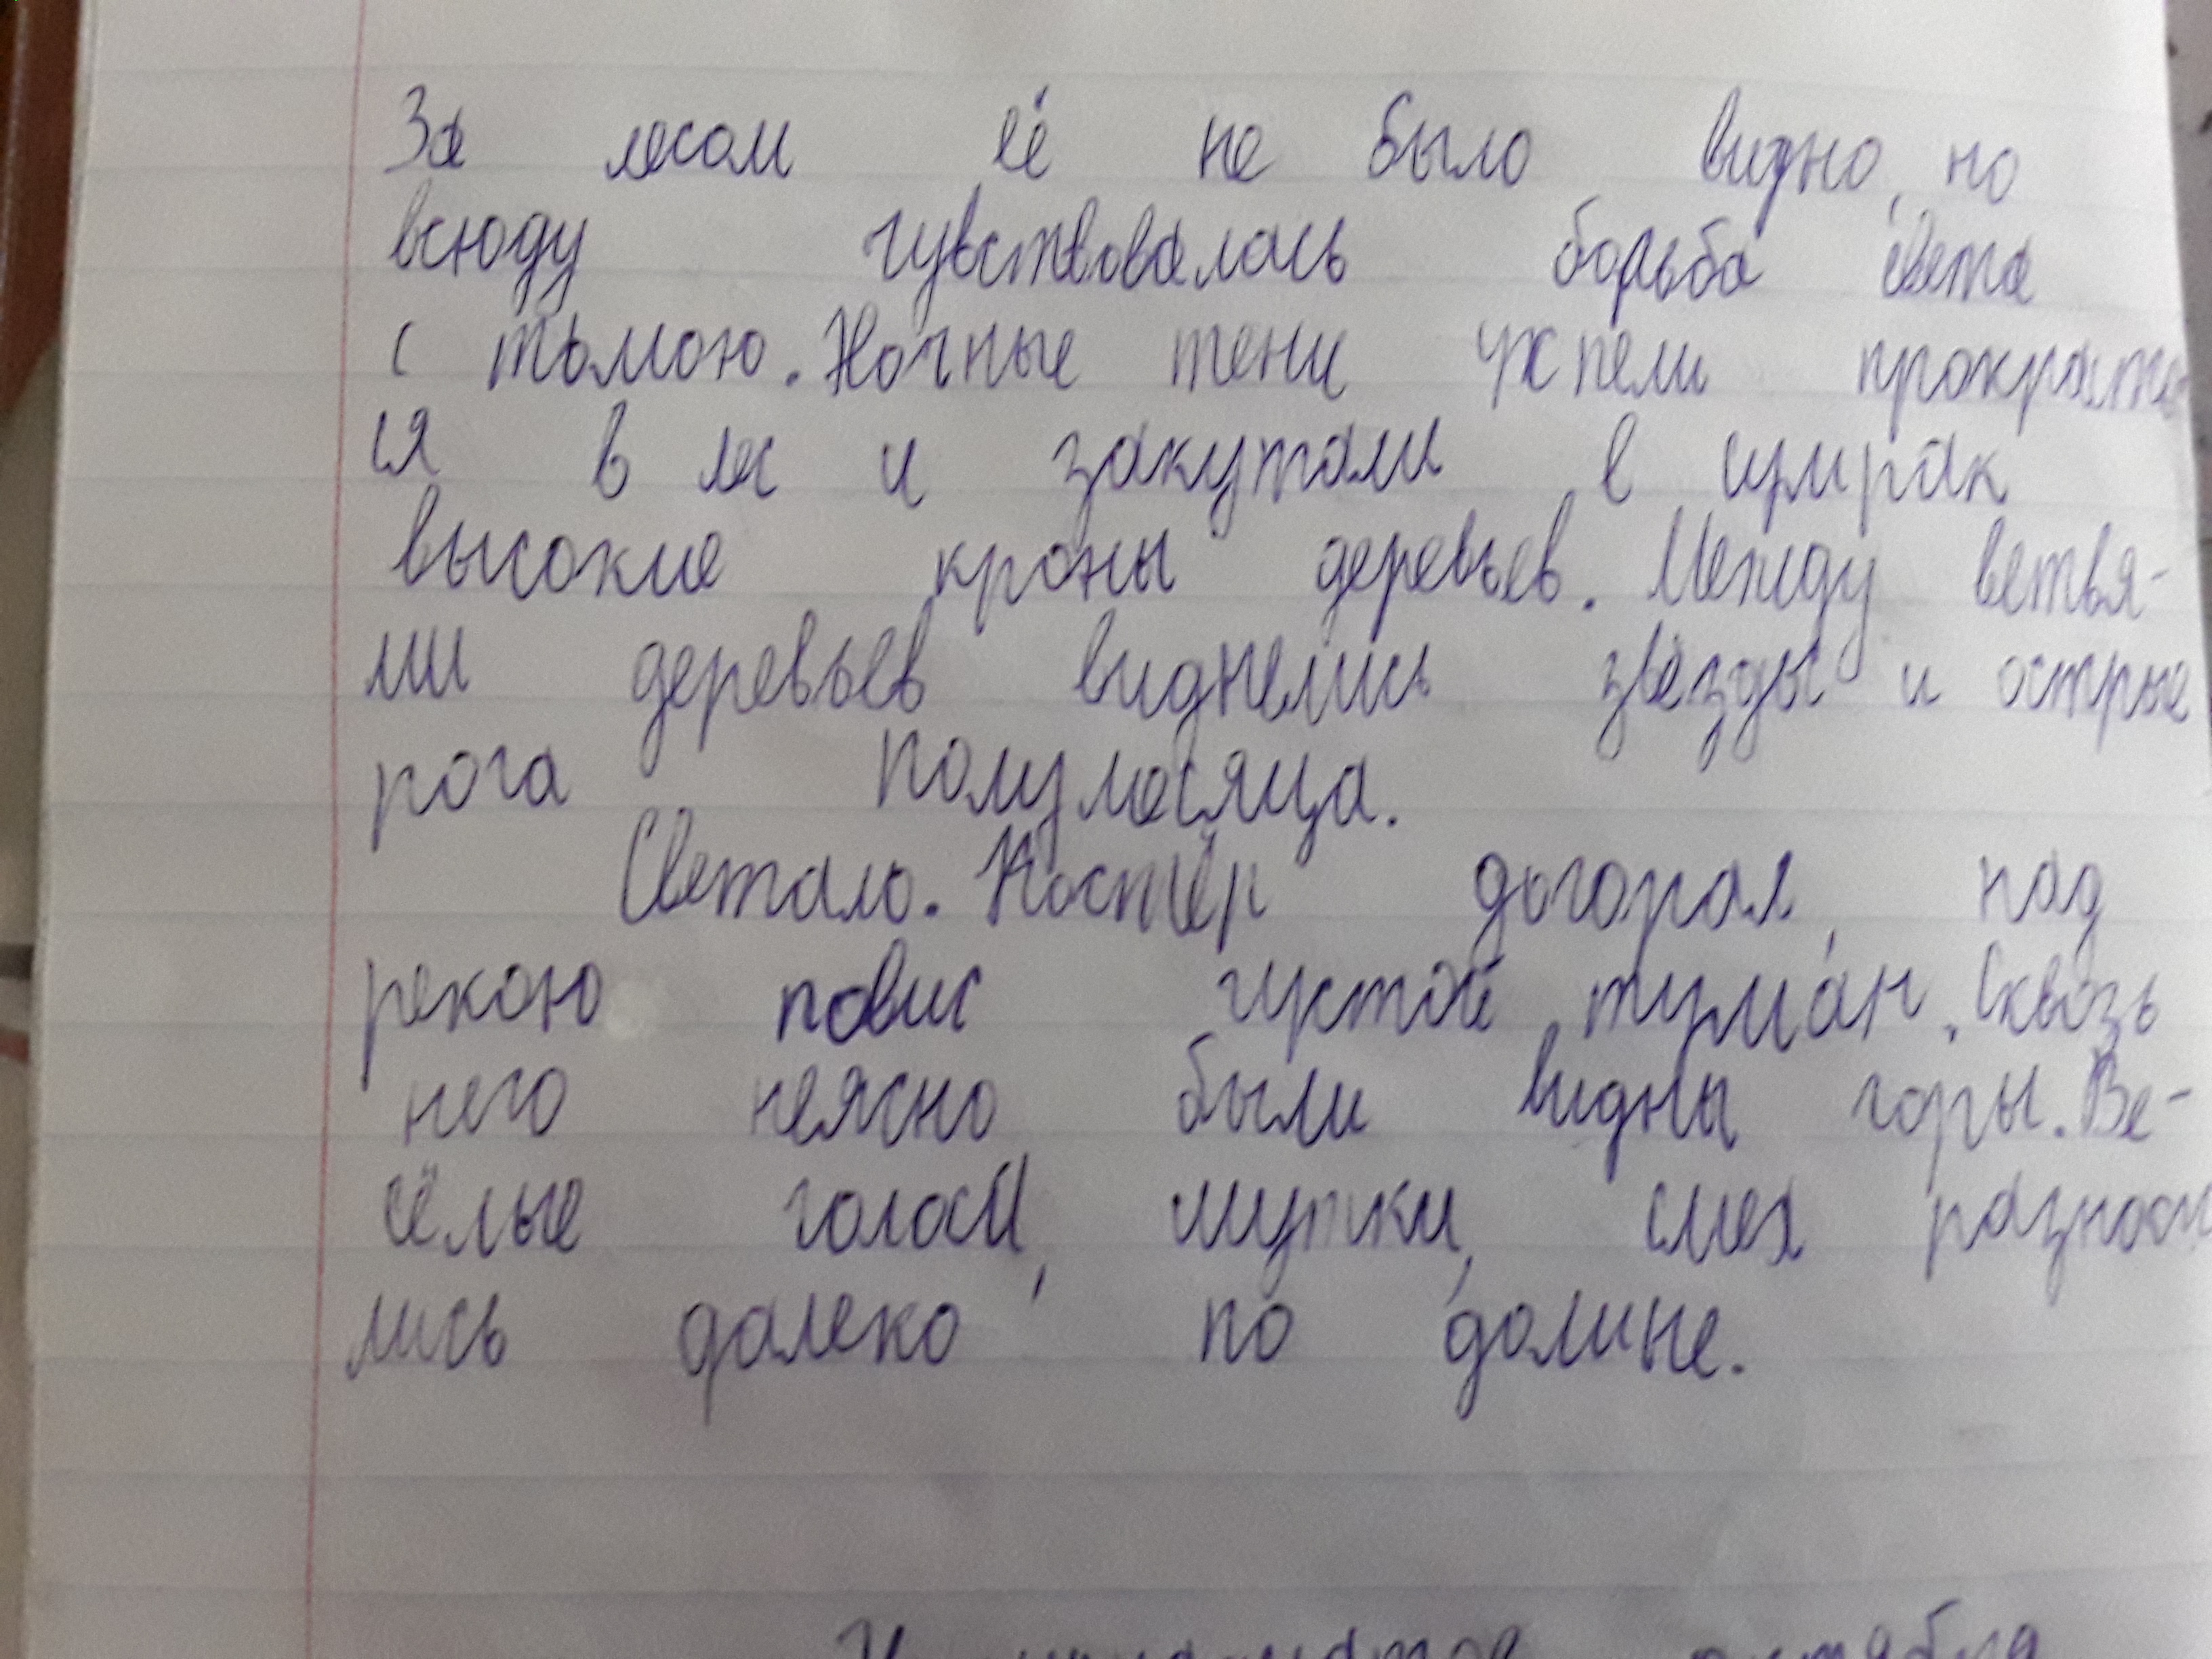 За лесом её не было видно, но
всюду чувствовалась борьба света
с тьмою. Ночные тени успели прокрасть
ся в лес и закутали в сумрак
высокие кроны деревьев. Между ветвя-
ми деревьев виднелись звёзды и острые
рога полумесяца.
Светало. Костёр догорал, над
рекою повис густой туман. Сквозь
него неясно были видны горы. Ве-
сёлые голоса, шутки, смех
лись далеко по долине.
октября